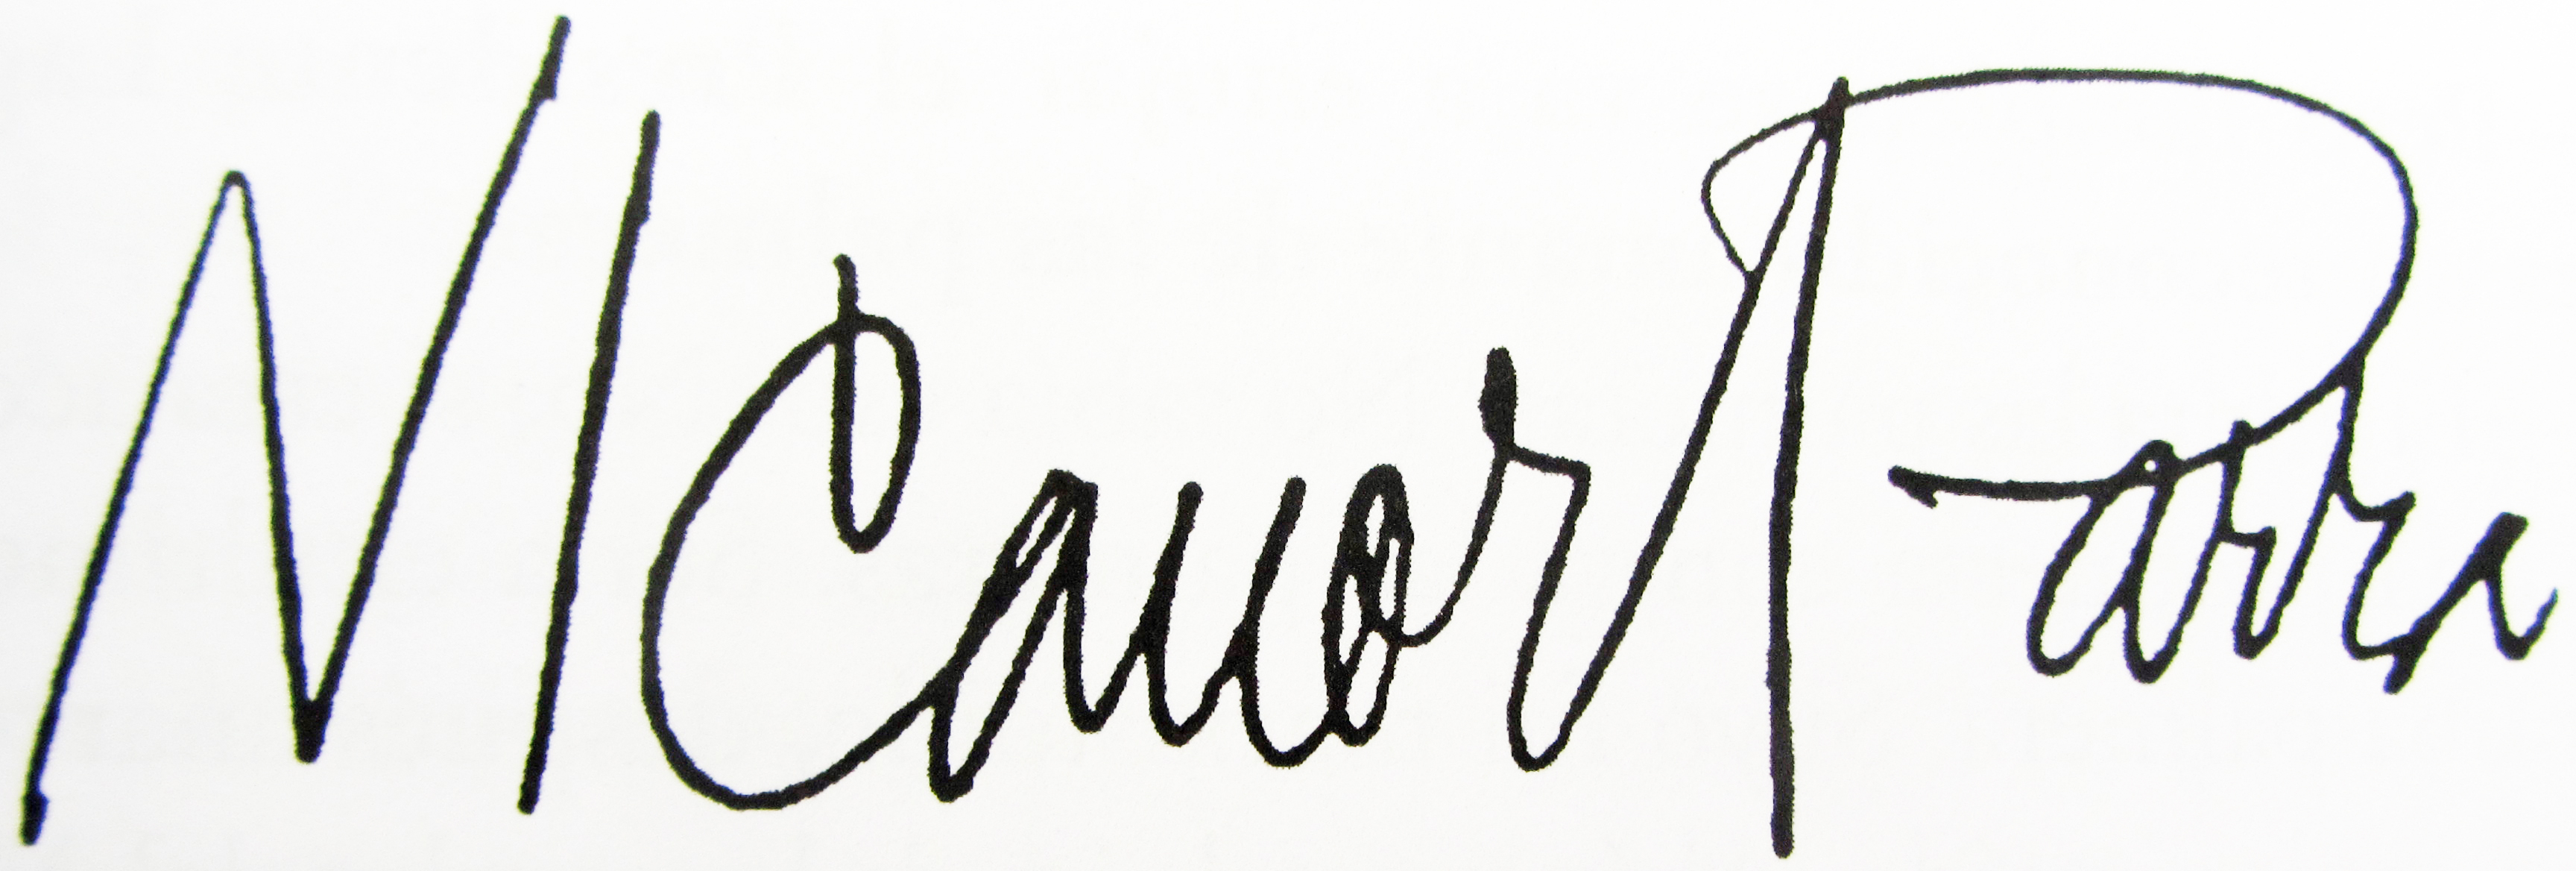 Nicanor Parra